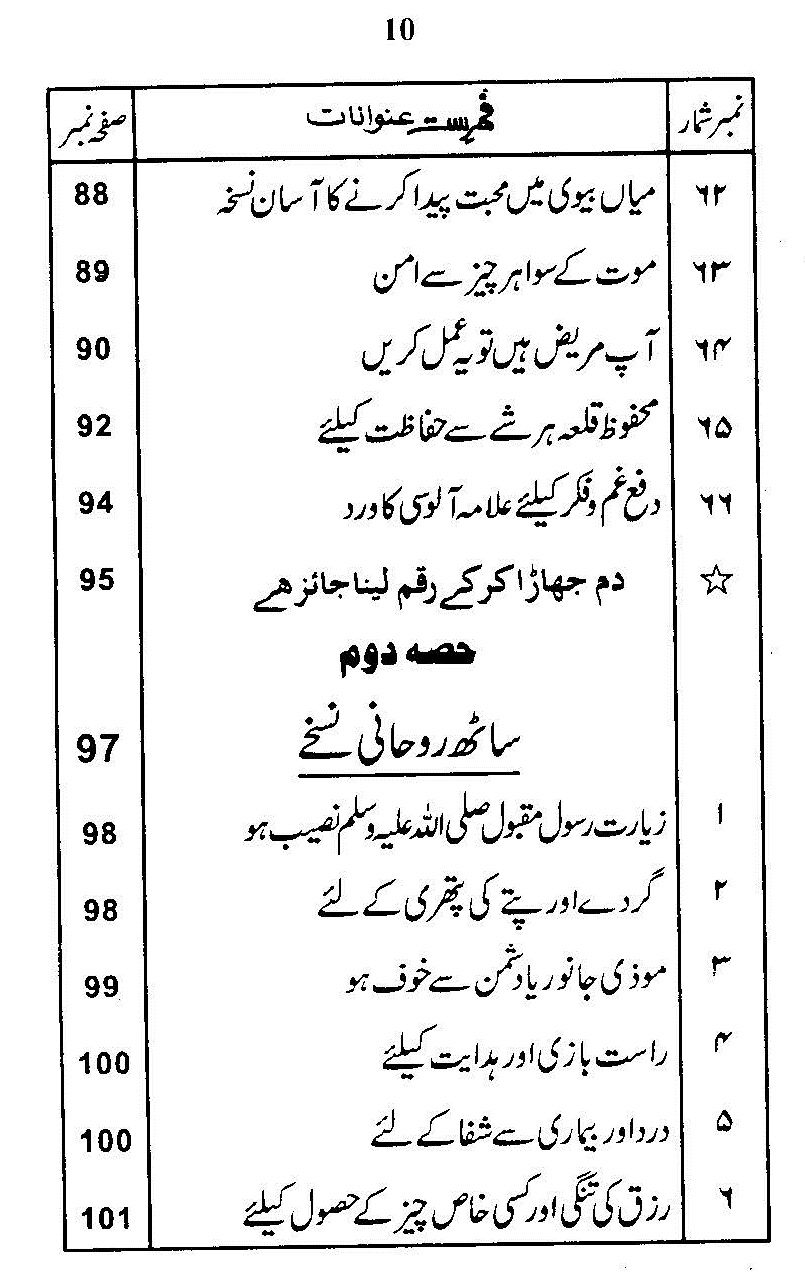 10
نمبر شمار فہرست عنوانات صفحہ نمبر
۶۲ میاں بیوی میں محبت پیدا کرنے کا آسان نسخہ 88
۶۳ موت کے سوا ہر چیز سے امن 89
۶۴ آپ مریض ہیں تو یہ عمل کریں 90
۶۵ محفوظ قلعہ ہر شے سے حفاظت کیلئے 92
۶۶ دفع غم و فکر کیلئے علامہ آلوسی کا ورد 94
☆ دم جھاڑا کر کے رقم لینا جائز ھے 95
حصہ دوم
ساٹھ روحانی نسخے 97
۱ زیارت رسول مقبول صلی اللہ علیہ وسلم نصیب ہو 98
۲ گردے اور پتے کی پتھری کے لئے 98
۳ موذی جانور یا دشمن سے خوف ہو 99
۴ راست بازی اور ہدایت کیلئے 100
۵ درد اور بیماری سے شفا کے لئے 100
۶ رزق کی تنگی اور کسی خاص چیز کے حصول کیلئے 101